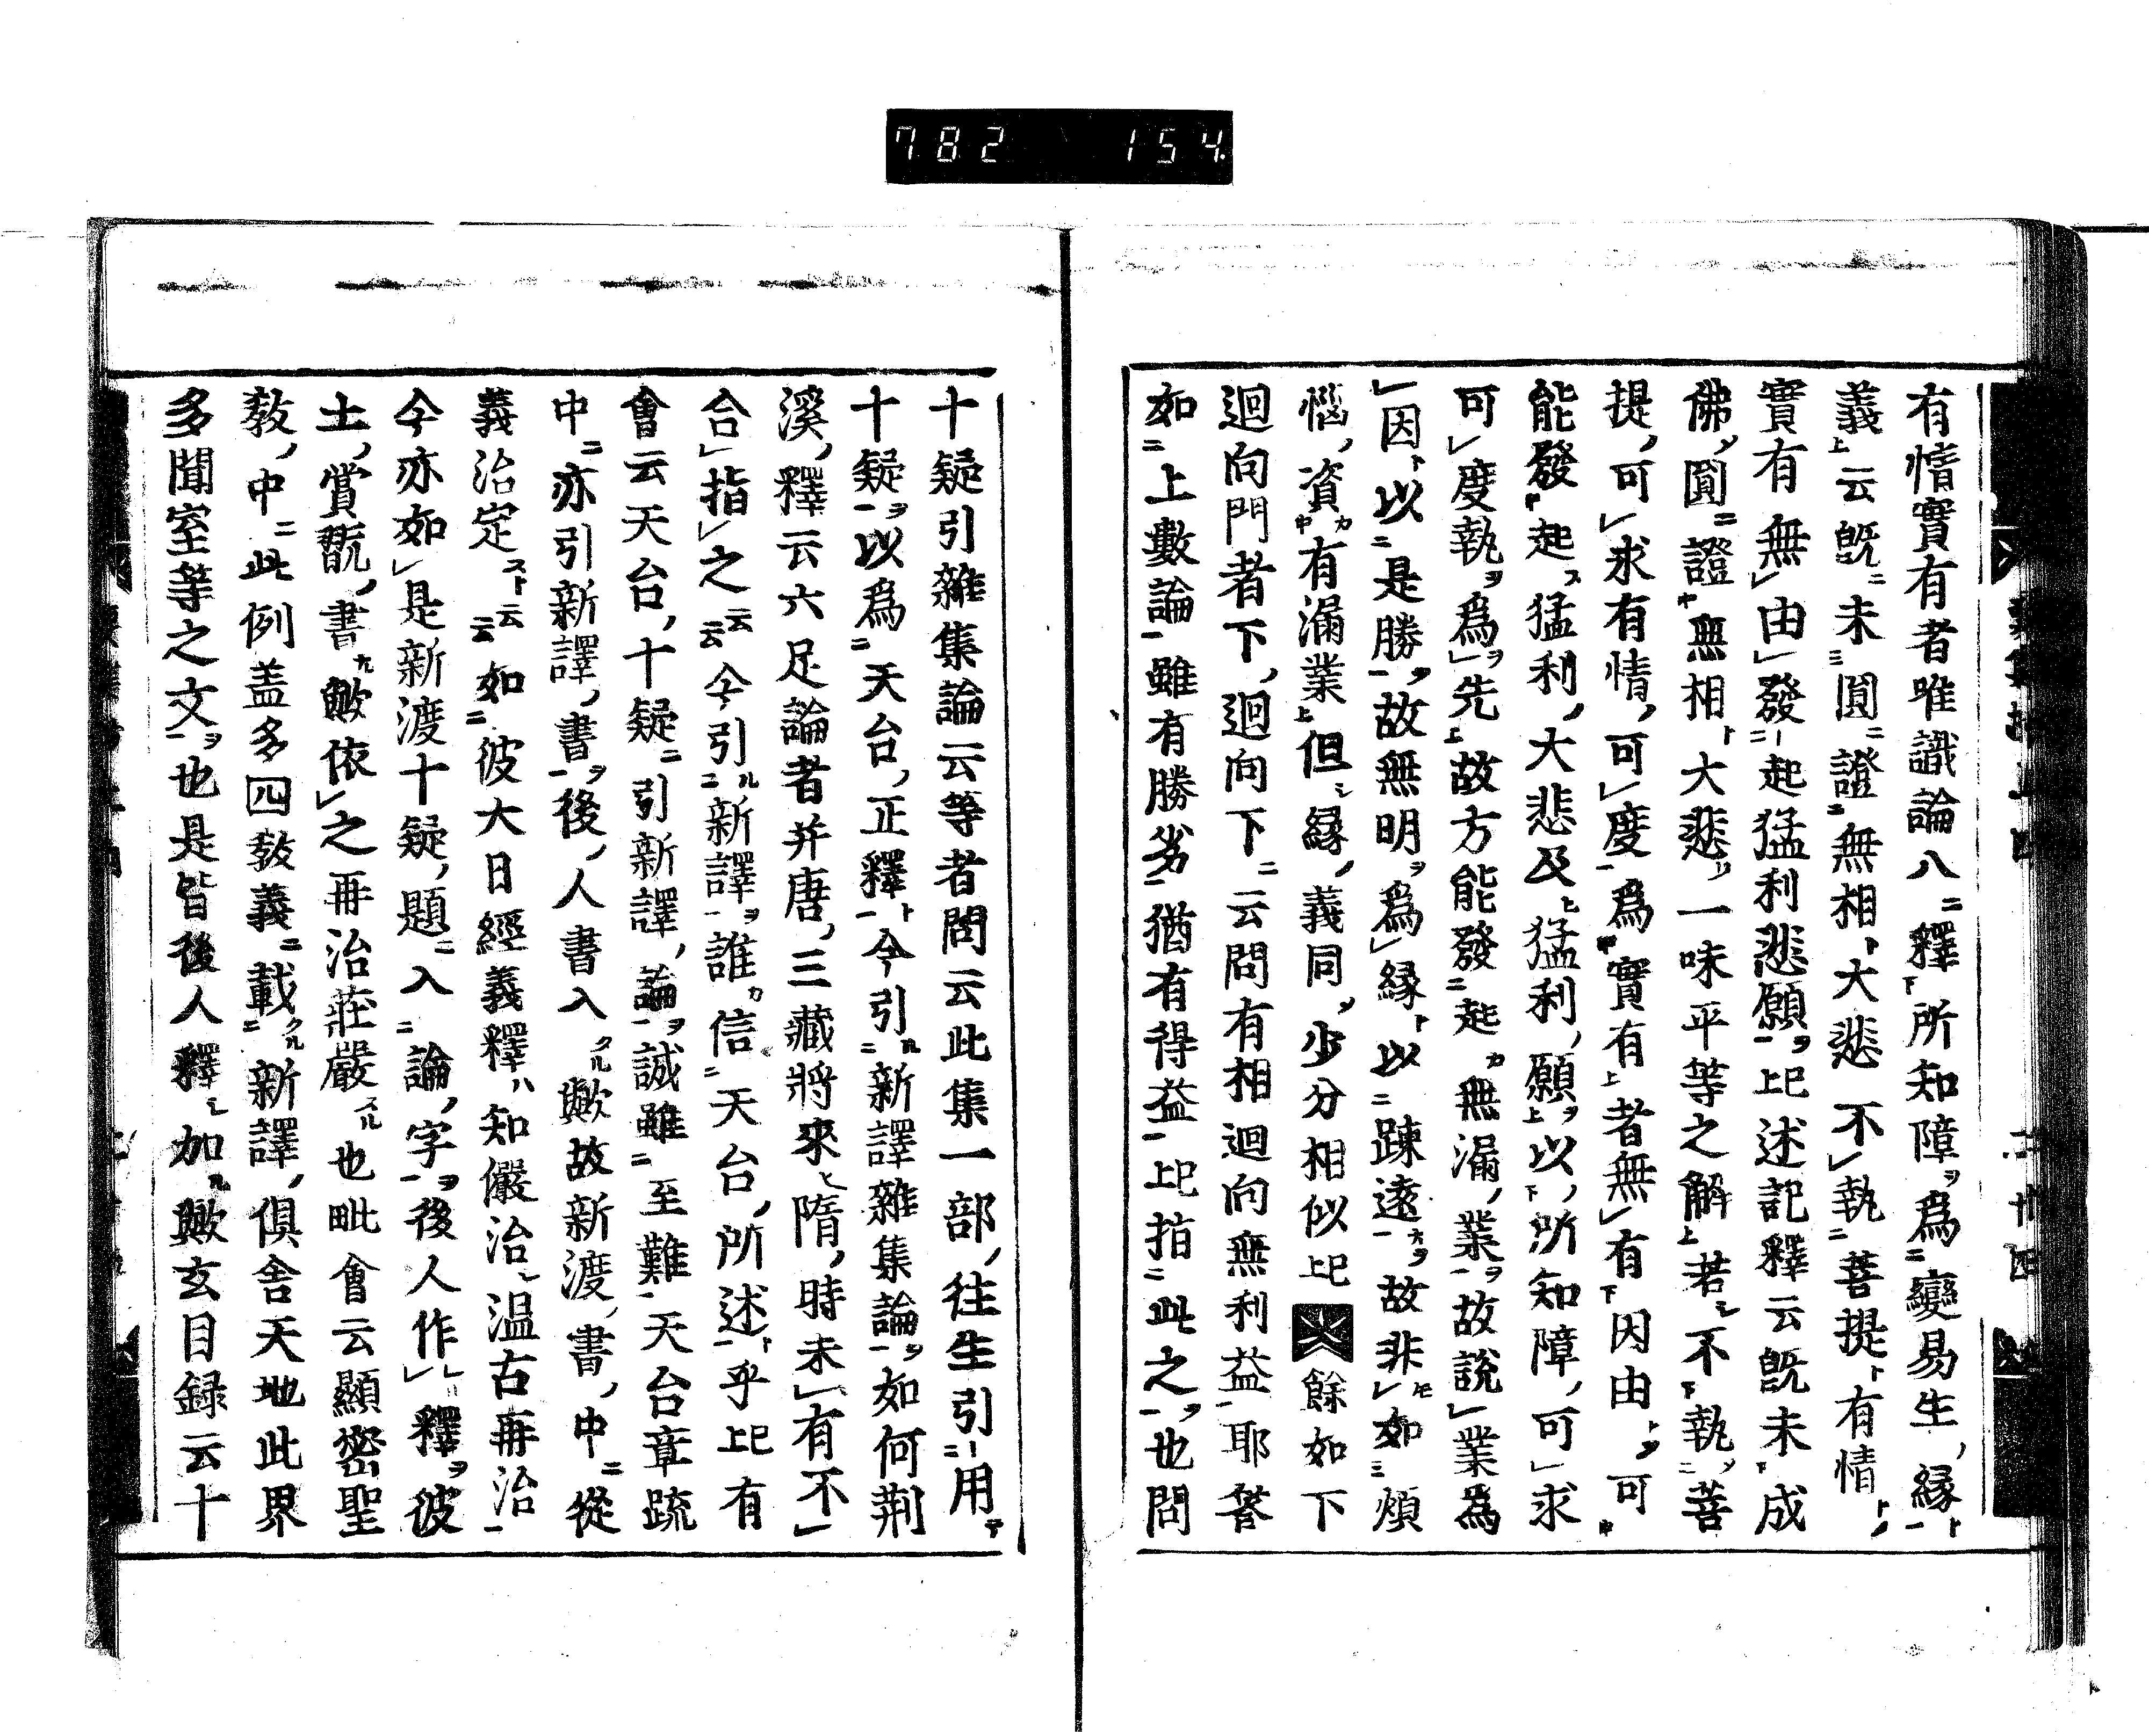 782 154
有情實有者唯識論八釋所知障爲變易生縁
義云既未圓證無相大悲不執菩提有情
實有無由發起猛利悲願上已述記釋云既未成
佛圓證無相大悲一味平等之解若不執菩
提可求有情可度爲實有者無有因由可
能發起猛利大悲及猛利願以所知障可求
可度執爲先故方能發起無漏業故説業為
因以是勝故無明爲縁以踈遠故非如煩
惱資有漏業但縁義同少分相似上已 餘如下
迴向門者下迴向下云問有相迴向無利益耶答
如上數論雖有勝劣猶有得益上已指此之也問
十疑引雜集論云等者問云此集一部往生引用
十疑以爲天台正釋今引新譯雜集論如何荆
溪釋云六足論者并唐三藏將來隋時未有不
合指之云云今引新譯誰信天台所述乎上已有
會云天台十疑引新譯論誠雖至難天台章疏
中亦引新譯書後人書入歟故新渡書中從
義治定云云如彼大日經義釋知儼治温古再治
今亦如是新渡十疑題入論字後人作釋彼
土賞翫書歟依之再治莊嚴也毗會云顯密聖
教中此例盖多四教義載新譯倶舎天地此界
多聞室等之文也是皆後人釋加歟玄目録云十